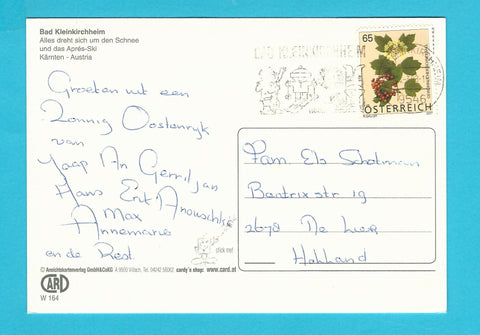 Bad Kleinkirchheim
Alles dreht sich um den Schnee
und das Après-Ski
Kärnten - Austria
BAD KLEINKIRCHHEIM
65
9546
ÖSTERREICH
Groeten uit een
Zonnig Oostenryk
van
Jaap An Gerrit Jan
Hans Erik Anouschka
Max
Annemarie
en de Rest.
Fam. Els Scholman
Beatrixstr 19
2678 De Lier
Holland
click me!
© Ansichtskartenverlag GmbH&CoKG A 9500 Villach, Tel. 04242 56062 cardy's shop: www.card.at
CARD
W 164